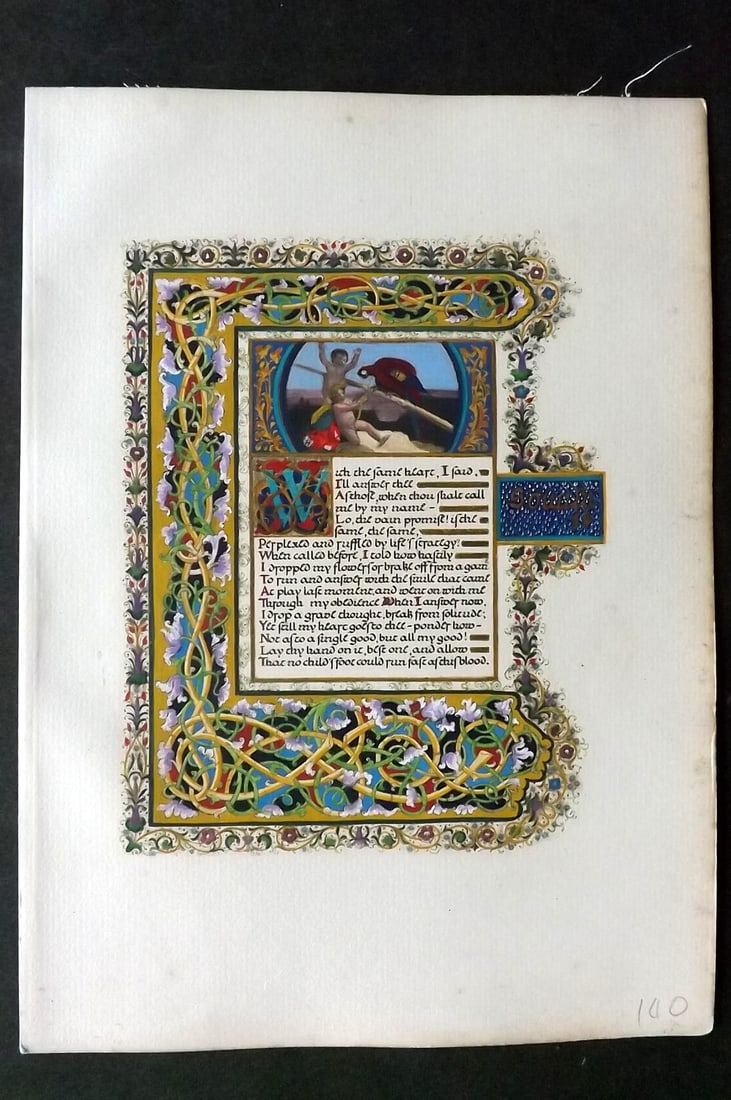 With the same heart, I said,
I'll answer thee
As those, when thou shalt call
me by my name -
Lo, the vain promise! is the
same, the same,
Perplexed and ruffled by life's strategy?
When called before, I told how hastily
I dropped my flowers or brake off from a game
To run and answer with the smile that came
At play last moment, and went on with me
Through my obedience When I answer now,
I drop a grave thought, break from solitude;
Yet still my heart goes to thee - ponder how -
Not as to a single good, but all my good!
Lay thy hand on it, best one, and allow
That no child's foot could run fast as this blood.
140